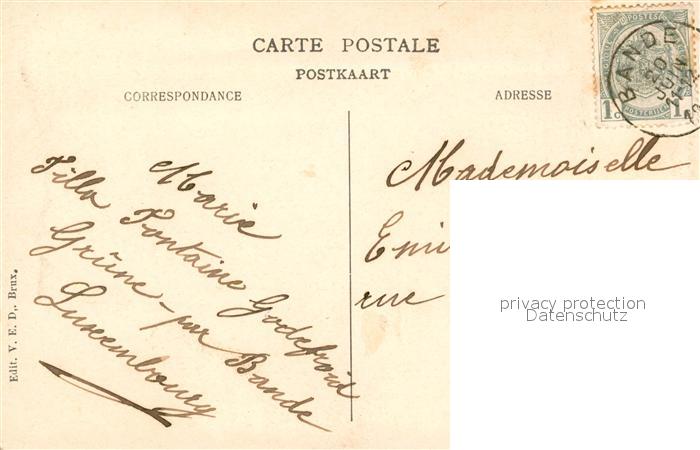 CARTE POSTALE
POSTKAART
CORRESPONDANCE
ADRESSE
POSTES
POSTERIJEN
1c
1
BANDE
20
JUIN
11
Marie
Villa Fontaine Godefroid
Grûne - par Bande
Luxembourg
Mademoiselle
Emi
rue
Edit. V. E. D., Brux.
privacy protection
Datenschutz